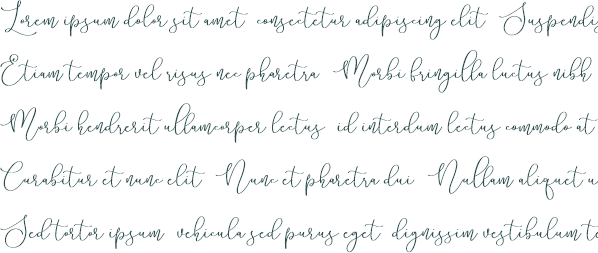 Lorem ipsum dolor sit amet consectetur adipiscing elit Suspendis
Etiam tempor vel risus nec pharetra Morbi fringilla luctus nibh
Morbi hendrerit ullamcorper lectus id interdum lectus commodo at
Curabitur et nunc elit Nunc et pharetra dui Nullam aliquet u
Sed tortor ipsum vehicula sed purus eget dignissim vestibulum te